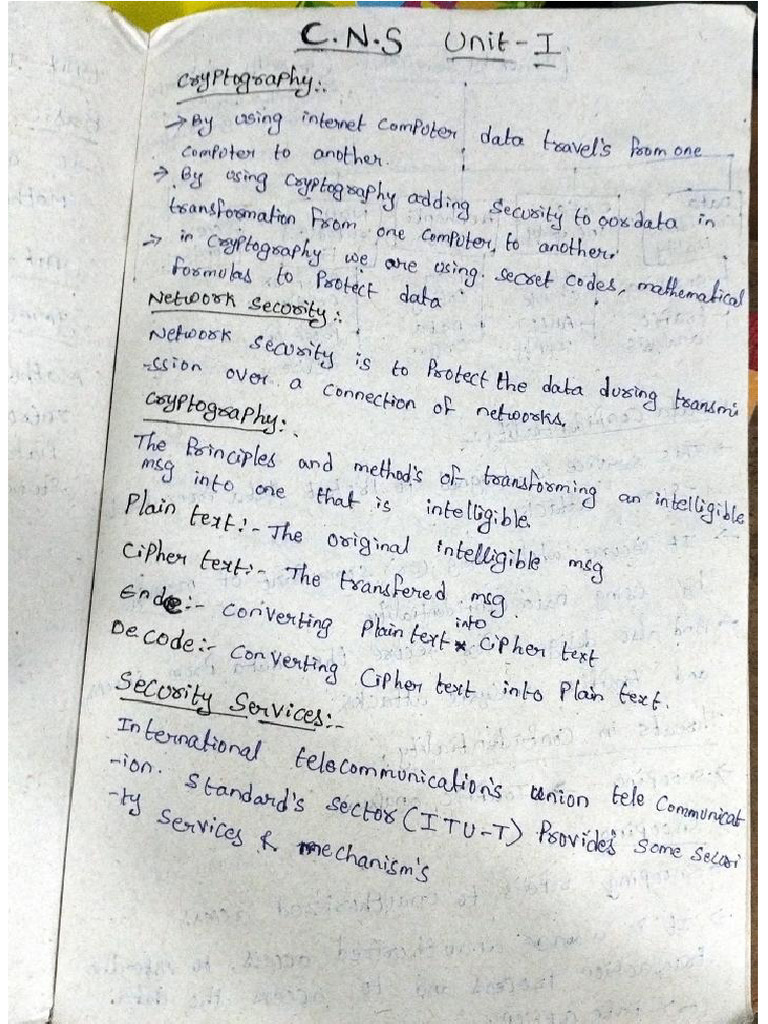 C.N.S Unit-I
Cryptography:.
→ By using internet computer data travel's from one
computer to another.
→ By using cryptography adding security to our data in
transformation from one computer, to another.
→ in cryptography we are using secret codes, mathematical
formulas to protect data
Network security:.
Network security is to protect the data during transmi
-ssion over a connection of networks.
Cryptography:.
The Principles and method's of transforming an intelligible
msg into one that is intelligible.
Plain text:- The original intelligible msg
Cipher text:- The transfered msg
Encde:- converting plain text into cipher text
Decode:- converting cipher text into plain text.
Security Services:-
International telecommunication's union tele communicat
-ion. Standard's sector (ITU-T) Provide's some securi
-ty services & mechanism's